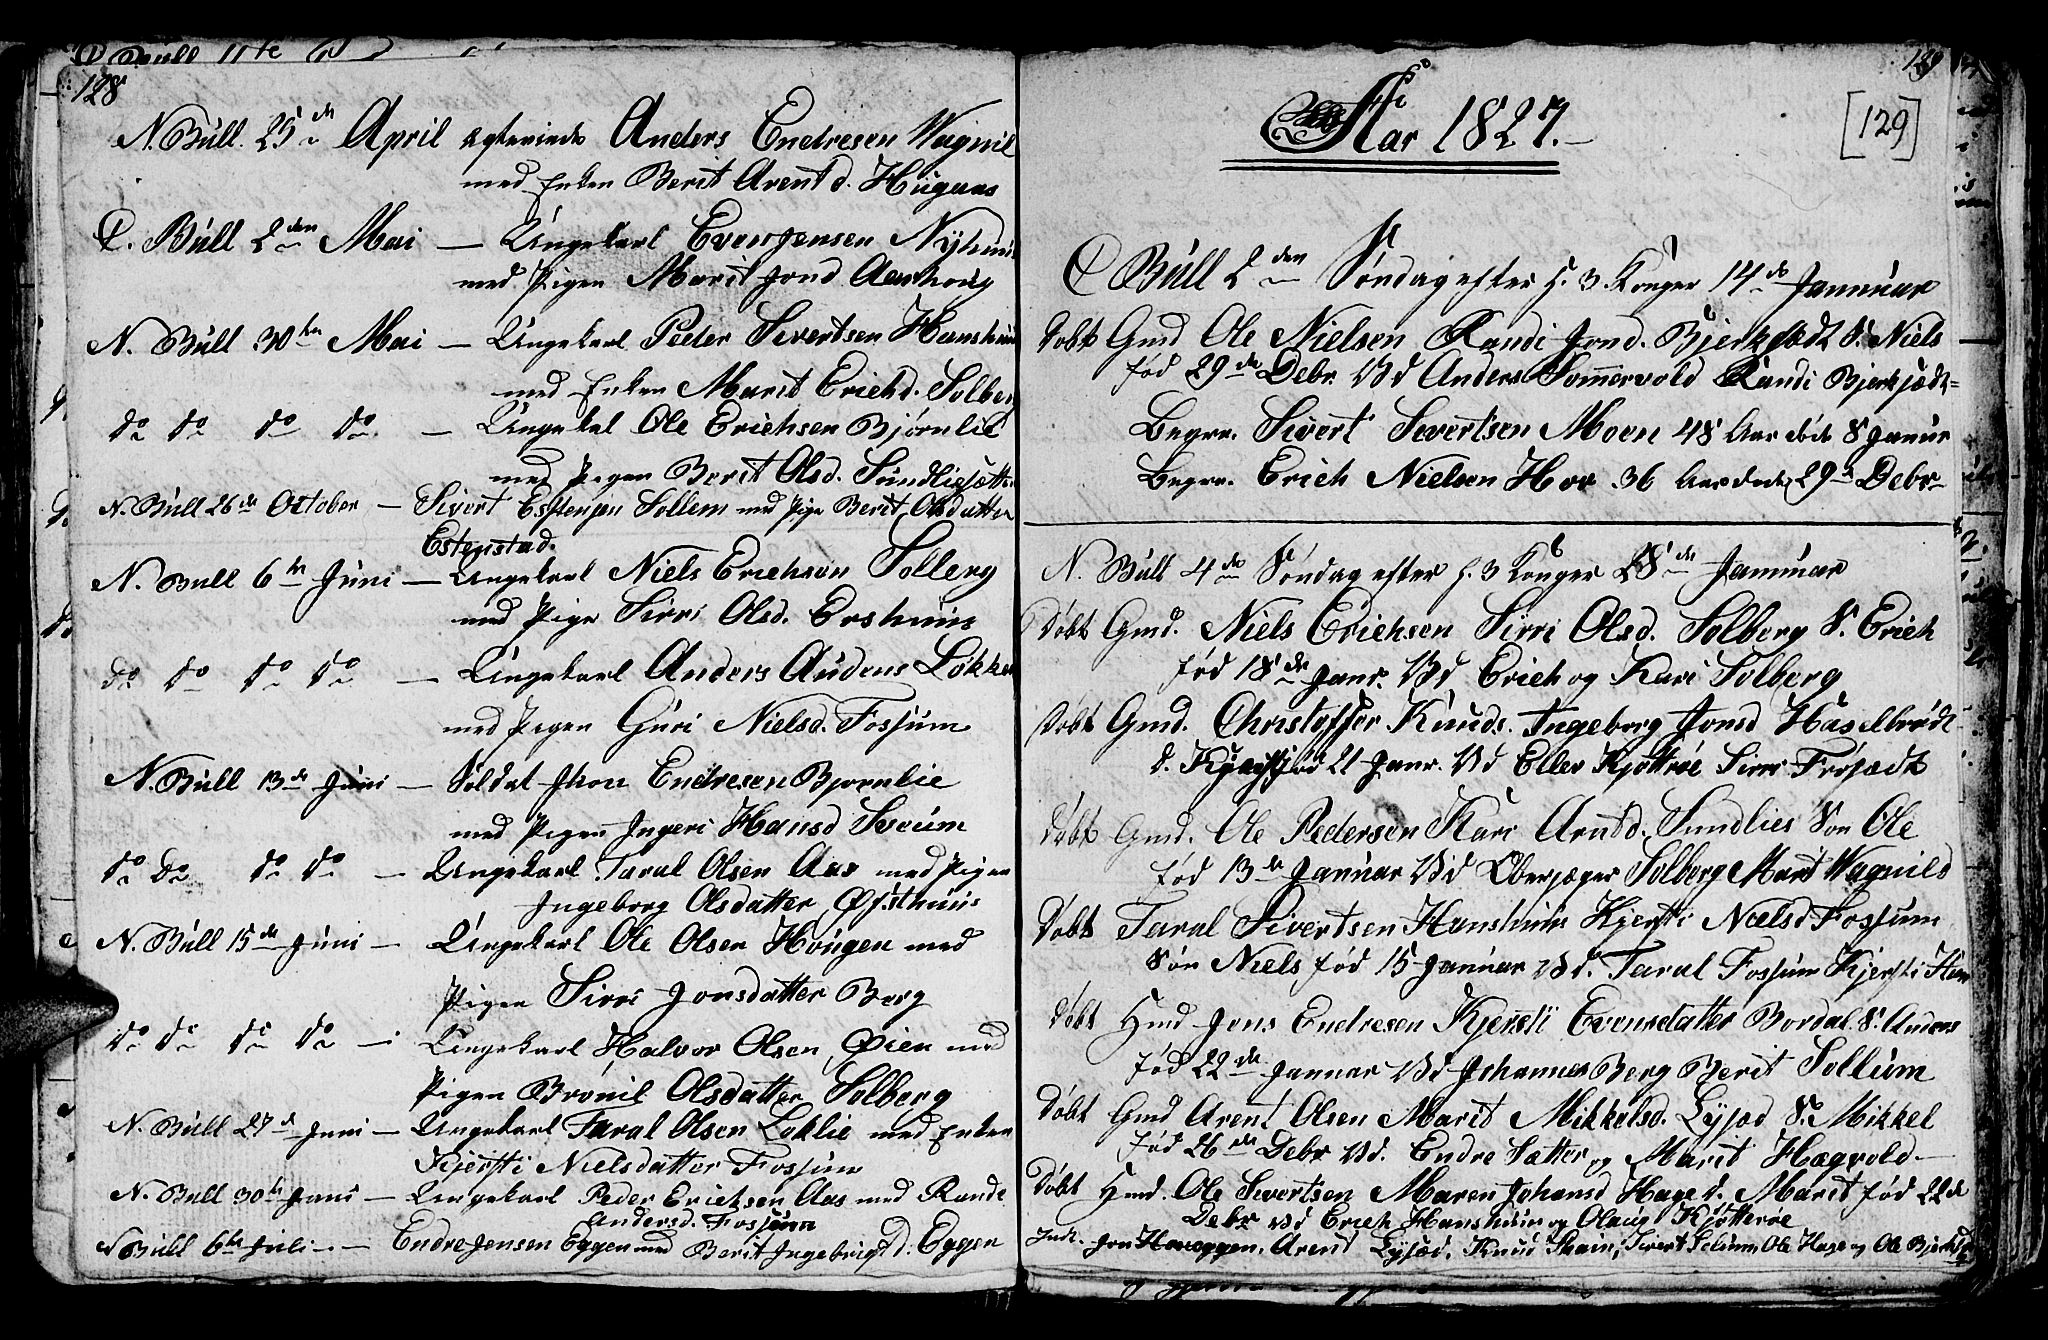 128
N. Bull. 25de April Ægteviede Anders Endresen Wagnil
med Enken Berit Arentd. Haugans
C. Bull 2den Mai — Ungekarl Even Jensen Nyhuus
med Pigen Marit Jond Aashoug
N. Bull 30te Mai — Ungekarl Peder Sivertsen Hanshuus
med Enken Marit Erichd. Solberg
do do do do — Ungekal Ole Erichsen Bjørnlie
med Pigen Berit Olsd. Sundliesætter
N. Bull 26de October — Sivert Estensen Sollem med Pige Berit Olsdatter
Estenstad.
N. Bull 6te Juni — Ungekarl Niels Erichsen Solberg
med Pige Sirri Olsd. Ershuus
do do do do — Ungekarl Anders Audens Løkken
med Pigen Guri Nielsd. Fossum
N. Bull 13de Juni — Soldat Jhon Endresen Bjørnlie
med Pigen Ingeri Hansd Sveum
do do do do — Ungekarl Taral Olsen Aas med Pigen
Ingeborg Olsdatter Østhuus
N. Bull 15de Juni — Ungekarl Ole Olsen Hougen med
Pigen Sirri Jonsdatter Berg
do do do do — Ungekarl Halvor Olsen Øien med
Pigen Brønil Olsdatter Solberg
N. Bull 27d Juni — Ungekarl Taral Olsen Løklie med Enken
Kjersti Nielsdatter Fossum
N. Bull 30te Juni — Ungekarl Peder Erichsen Aas med Rande
Andersd. Fossum
N Bull 6te Juli — Endre Jensen Eggen med Berit Ingebrigtd. Eggen
129
[129]
Aar 1827.
C Bull 2den Søndag efter H. 3 Konger 14de Januuar
Døbt Gmd Ole Nielsen Randi Jond. Bjerksædt S. Niels
fød 29de Debr. Vd Anders Sommervold Randi Bjerksædt
Begrv. Sivert Sivertsen Moen 48 Aar døde 8 Januar
Begrv. Erich Nielsen Hov 36 Aar døde 29de Debr
N. Bull 4de Søndag efter H. 3 Konger 28de Januuar
Døbt Gmd. Niels Erichsen Sirri Olsd. Solberg S. Erich
fød 18de Janr. Vd Erich og Kari Solberg
Døbt Gmd. Christoffer Knuds. Ingeborg Jonsd Haselbrødt
d. fød 21 Janr. Vd Eller Kjøttrøe Sirri Frøsædt
Døbt Gmd. Ole Pedersen Kari Arntd. Sundlies Søn Ole
fød 13de Januar Vd Oberjæger Solberg Marit Wagnild
Døbt Taral Sivertsen Hanshuus Kjersti Nielsd Fossum
Søn Niels fød 15 Januar Vd. Taral Fossum Kjersti
Døbt Hmd Jons Endresen Kjersti Evensdatter Bordal. S. Anders
fød 22de Januar Vd Johannes Berg Berit Sollium
Døbt Gmd Arent Olsen Marit Mikkelsd. Lysød S. Mikkel
fød 26de Debr Vd. Endre Sætter og Marit Hægvold
Døbt Hmd. Ole Sivertsen Maren Johansd Hage d. Marit fød 22de
Debr Vd Erich Hanshuus og Olaug Kjøtterøe
Indt. Jon Haneggen, Arend Lysød, Knud Skain, Sivert Selium, Ole Hage og Ole